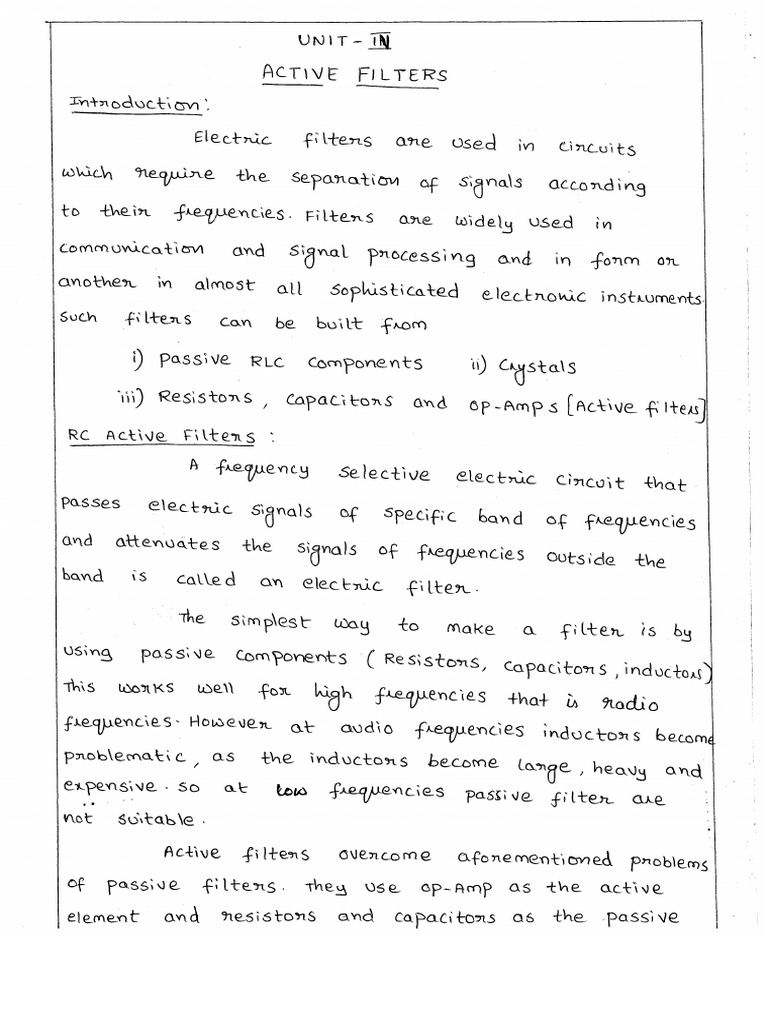 UNIT - IV
ACTIVE FILTERS
Introduction:
Electric filters are used in circuits
which require the separation of signals according
to their frequencies. Filters are widely used in
communication and signal processing and in form or
another in almost all sophisticated electronic instruments.
Such filters can be built from
i) Passive RLC components ii) Crystals
iii) Resistors, capacitors and op-Amps [Active filters]
RC Active Filters:
A frequency selective electric circuit that
passes electric signals of specific band of frequencies
and attenuates the signals of frequencies outside the
band is called an electric filter.
The simplest way to make a filter is by
using passive components (Resistors, capacitors, inductors)
This works well for high frequencies that is radio
frequencies. However at audio frequencies inductors become
problematic, as the inductors become large, heavy and
expensive. so at low frequencies passive filter are
not suitable.
Active filters overcome aforementioned problems
of passive filters. They use op-Amp as the active
element and resistors and capacitors as the passive